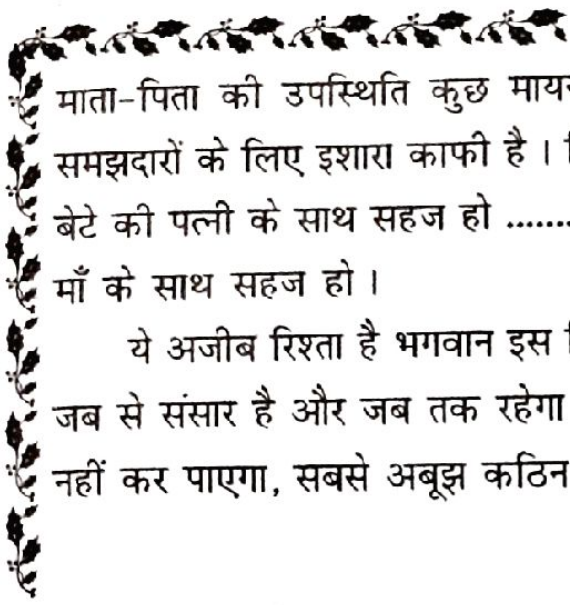 माता-पिता की उपस्थिति कुछ
समझदारों के लिए इशारा काफी है ।
बेटे की पत्नी के साथ सहज हो ........
माँ के साथ सहज हो ।
ये अजीब रिश्ता है भगवान इस
जब से संसार है और जब तक रहेगा
नहीं कर पाएगा, सबसे अबूझ कठिन